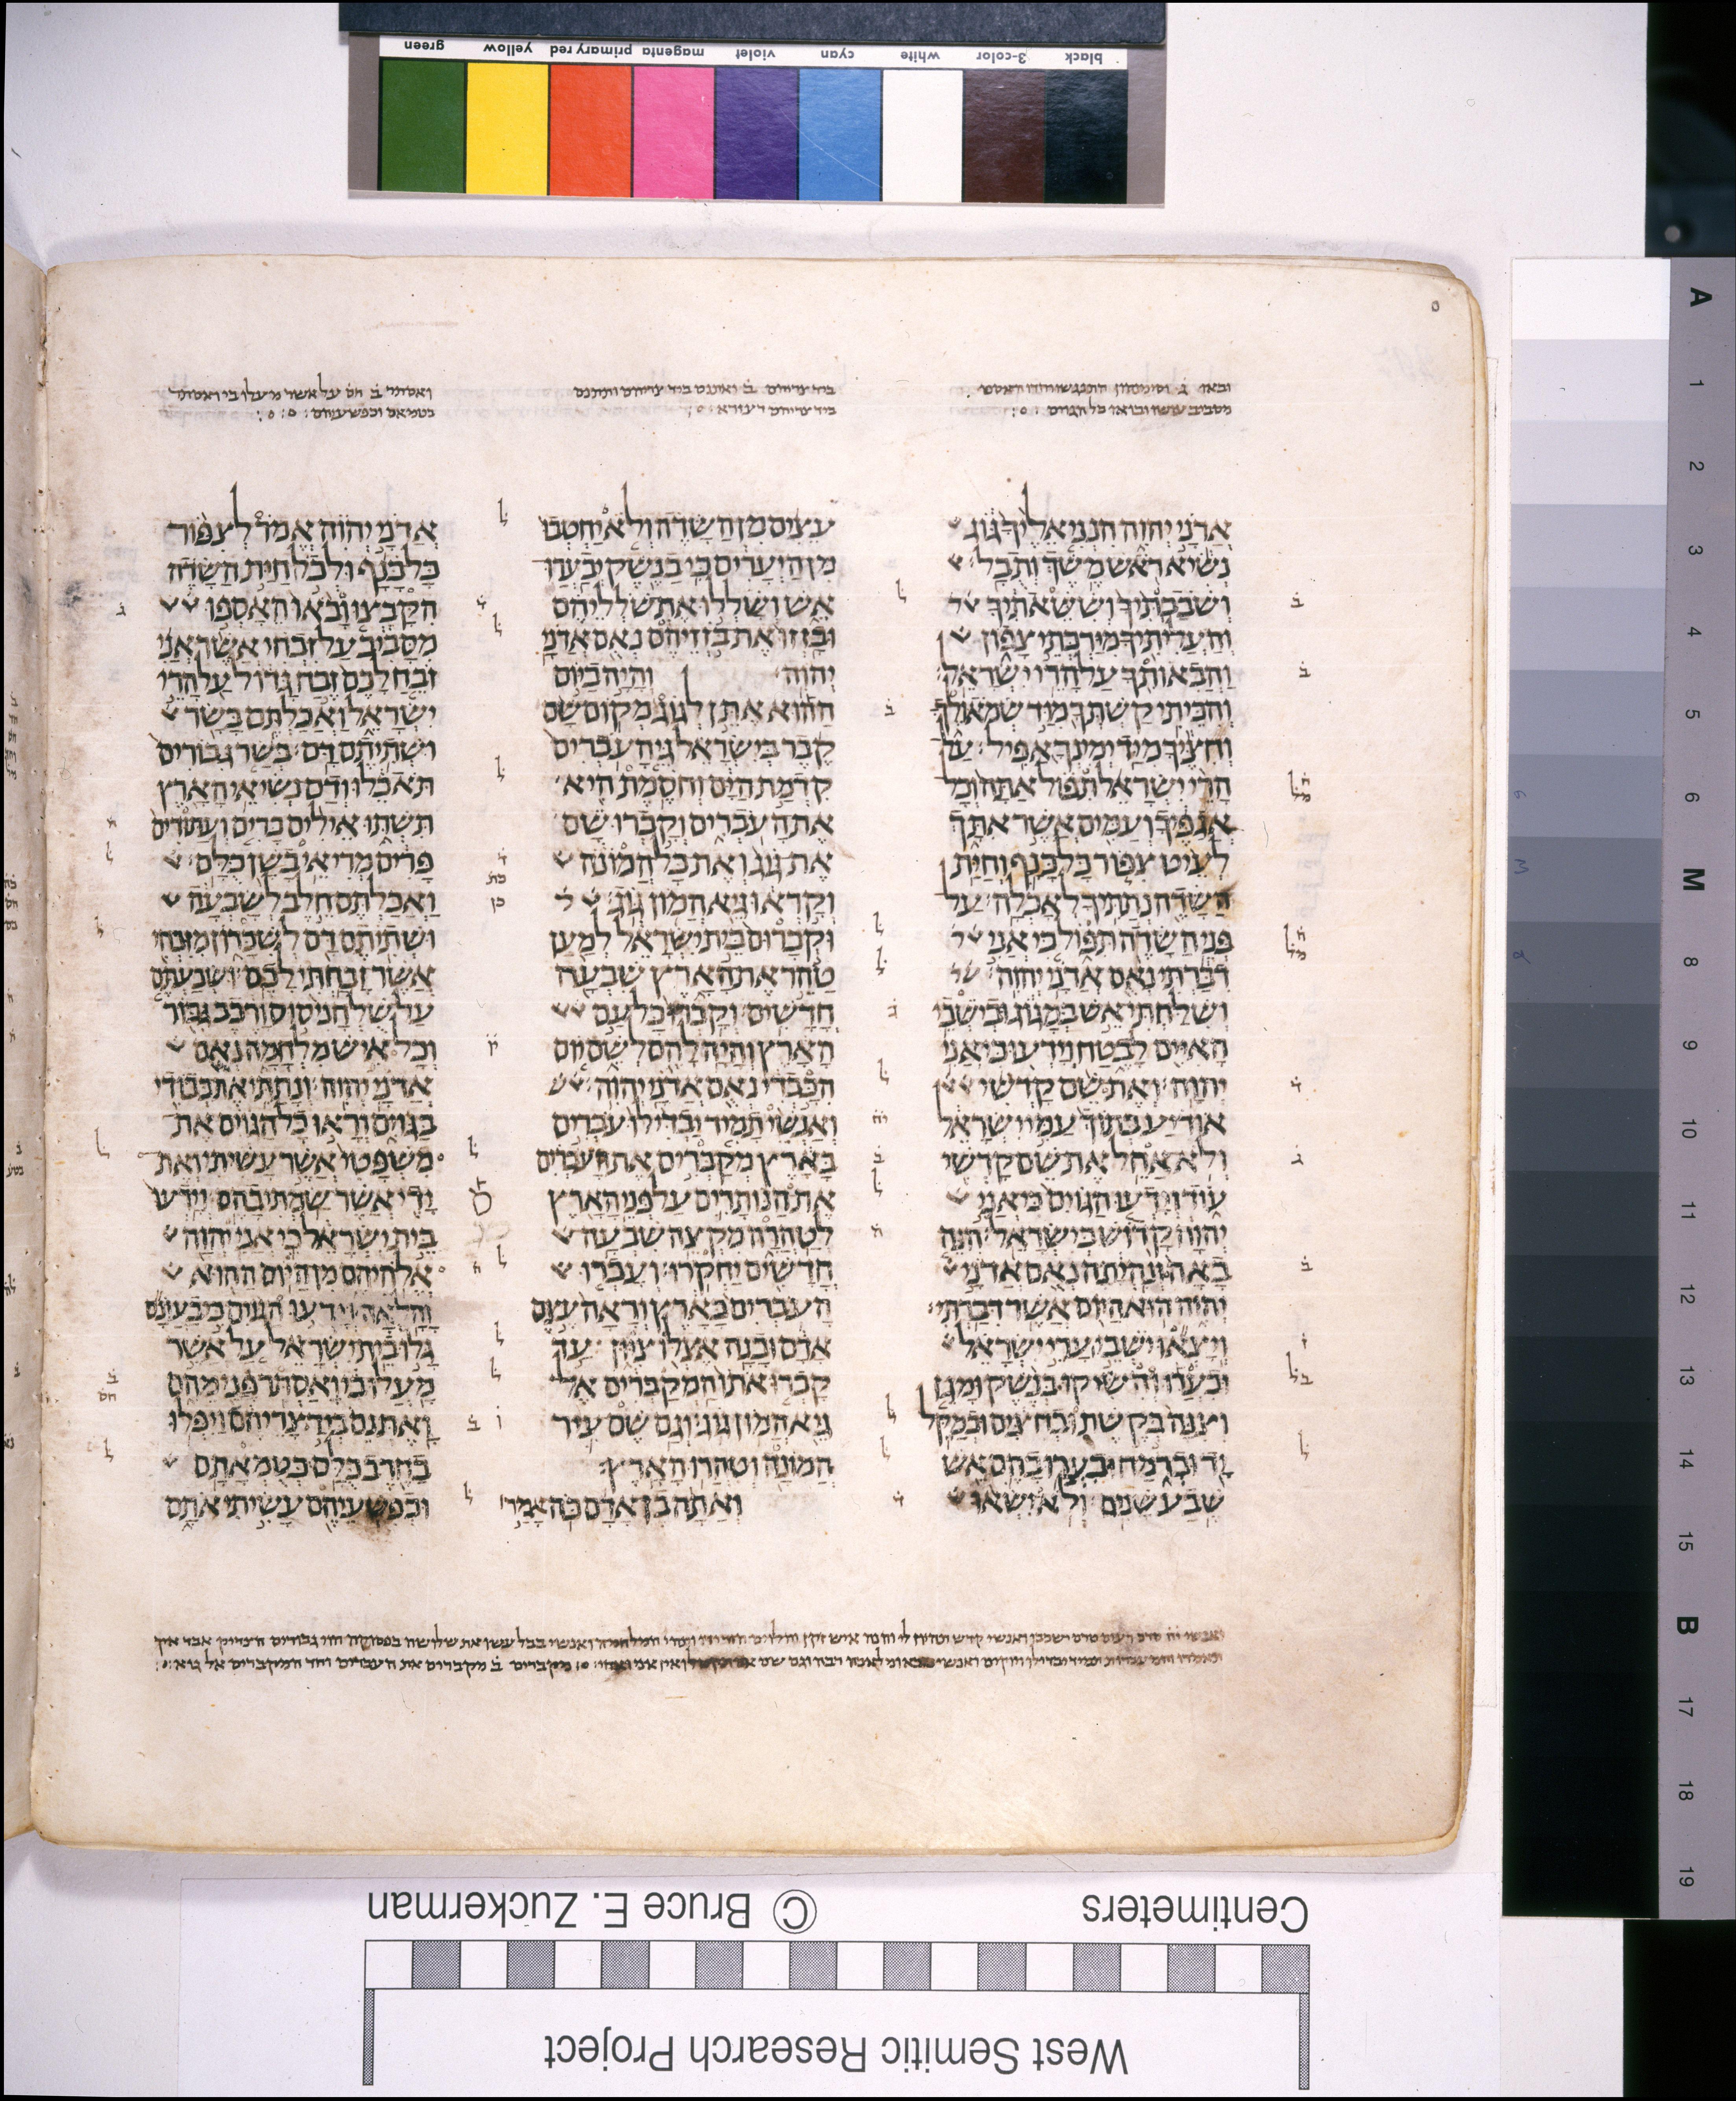 black 3-color white cyan violet magenta primary red yellow green
ובאו ג וסימנהון
מסביב עושו ובואו כל הגוים
ביד צריהם ב ואתנם ביד צריהם ותתנם
ביד צריהם דעזרא
ואסתר ב הם על אשר מעלו בי ואסתר
כטמאם וכפשעיהם
אדני יהוה הנני אליך גוג
נשיא ראש משך ותבל
ושבבתיך וששאתיך
והעליתיך מירכתי צפון
והבאותך על הרי ישראל׃
והכיתי קשתך מיד שמאולך
וחציך מיד ימינך אפיל׃ על
הרי ישראל תפול אתה וכל
אגפיך ועמים אשר אתך
לעיט צפור כל כנף וחית
השדה נתתיך לאכלה׃ על
פני השדה תפול כי אני
דברתי נאם אדני יהוה׃
ושלחתי אש במגוג ובישבי
האיים לבטח וידעו כי אני
יהוה׃ ואת שם קדשי
אודיע בתוך עמי ישראל
ולא אחל את שם קדשי
עוד וידעו הגוים כי אני
יהוה קדוש בישראל׃ הנה
באה ונהיתה נאם אדני
יהוה הוא היום אשר דברתי׃
ויצאו ישבי ערי ישראל
ובערו והשיקו בנשק ומגן
וצנה בקשת ובחצים ובמקל
יד וברמח ובערו בהם אש
שבע שנים׃ ולא ישאו
עצים מן השדה ולא יחטבו
מן היערים כי בנשק יבערו
אש ושללו את שלליהם
ובזזו את בזזיהם נאם אדני
יהוה׃ והיה ביום
ההוא אתן לגוג מקום שם
קבר בישראל גי העברים
קדמת הים וחסמת היא
את העברים וקברו שם
את גוג ואת כל המונה
וקראו גיא המון גוג׃
וקברום בית ישראל למען
טהר את הארץ שבעה
חדשים׃ וקברו כל עם
הארץ והיה להם לשם יום
הכבדי נאם אדני יהוה׃
ואנשי תמיד יבדילו עברים
בארץ מקברים את העברים
את הנותרים על פני הארץ
לטהרה מקצה שבעה
חדשים יחקרו׃ ועברו
העברים בארץ וראה עצם
אדם ובנה אצלו ציון עד
קברו אתו המקברים אל
גיא המון גוג׃ וגם שם עיר
המונה וטהרו הארץ׃
ואתה בן אדם כה אמר
אדני יהוה אמר לצפור
כל כנף ולכל חית השדה
הקבצו ובאו האספו
מסביב על זבחי אשר אני
זבח לכם זבח גדול על הרי
ישראל ואכלתם בשר
ושתיתם דם׃ בשר גבורים
תאכלו ודם נשיאי הארץ
תשתו אילים כרים ועתודים
פרים מריאי בשן כלם׃
ואכלתם חלב לשבעה
ושתיתם דם לשכרון מזבחי
אשר זבחתי לכם׃ ושבעתם
על שלחני סוס ורכב גבור
וכל איש מלחמה נאם
אדני יהוה׃ ונתתי את כבודי
בגוים וראו כל הגוים את
משפטי אשר עשיתי ואת
ידי אשר שמתי בהם׃ וידעו
בית ישראל כי אני יהוה
אלהיהם מן היום ההוא
והלאה׃ וידעו הגוים כי בעונם
גלו בית ישראל על אשר
מעלו בי ואסתר פני מהם
ואתנם ביד צריהם ויפלו
בחרב כלם׃ כטמאתם
וכפשעיהם עשיתי אתם
Centimeters © Bruce E. Zuckerman
West Semitic Research Project
A 1 2 3 4 5 6 M 8 9 10 11 12 13 14 15 B 17 18 19